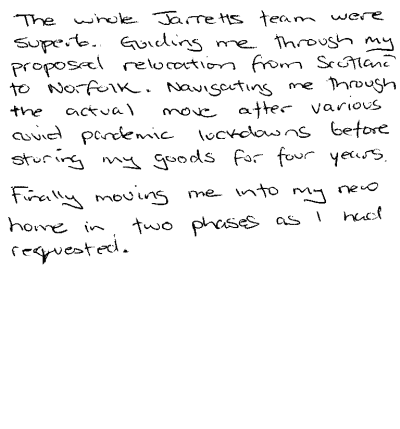 The whole Jarretts team were
superb. Guiding me through my
proposed relocation from Scotland
to Norfolk. Navigating me through
the actual move after various
covid pandemic lockdowns before
storing my goods for four years.
Finally moving me into my new
home in two phases as I had
requested.